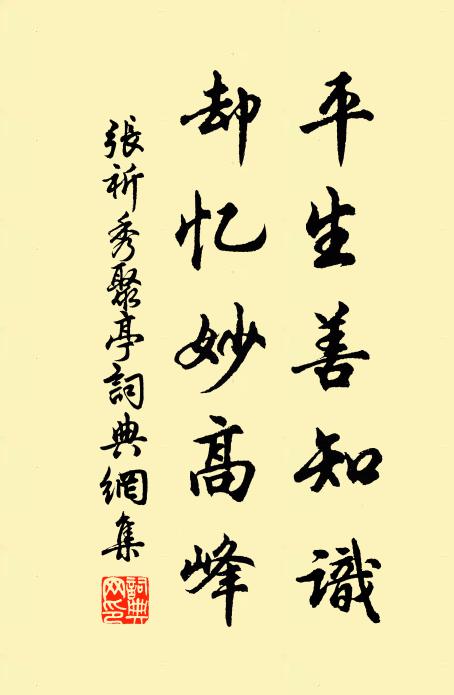 平生善知識
却忆妙高峰
張祈秀聚亭詞典網集
詞典網印